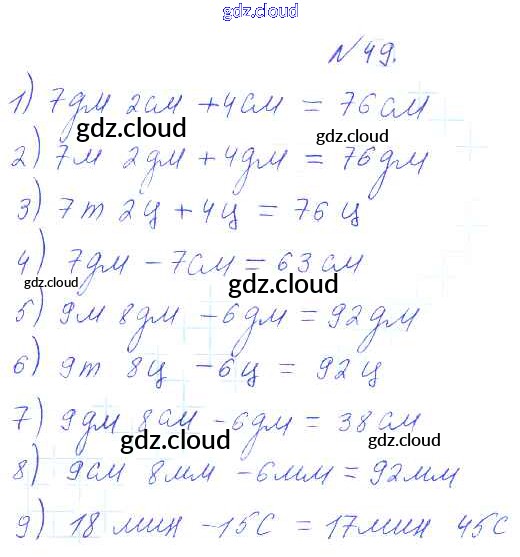 gdz.cloud
№ 49.
1) 7дм 2см + 4см = 76см
gdz.cloud gdz.cloud
2) 7м 2дм + 4дм = 76дм
3) 7т 2ц + 4ц = 76ц
4) 7дм - 7см = 63см
gdz.cloud gdz.cloud
5) 9м 8дм - 6дм = 92дм
6) 9т 8ц - 6ц = 92ц
7) 9дм 8см - 6дм = 38см
gdz.cloud gdz.cloud
8) 9см 8мм - 6мм = 92мм
9) 18 мин - 15с = 17мин 45с
gdz.cloud gdz.cloud